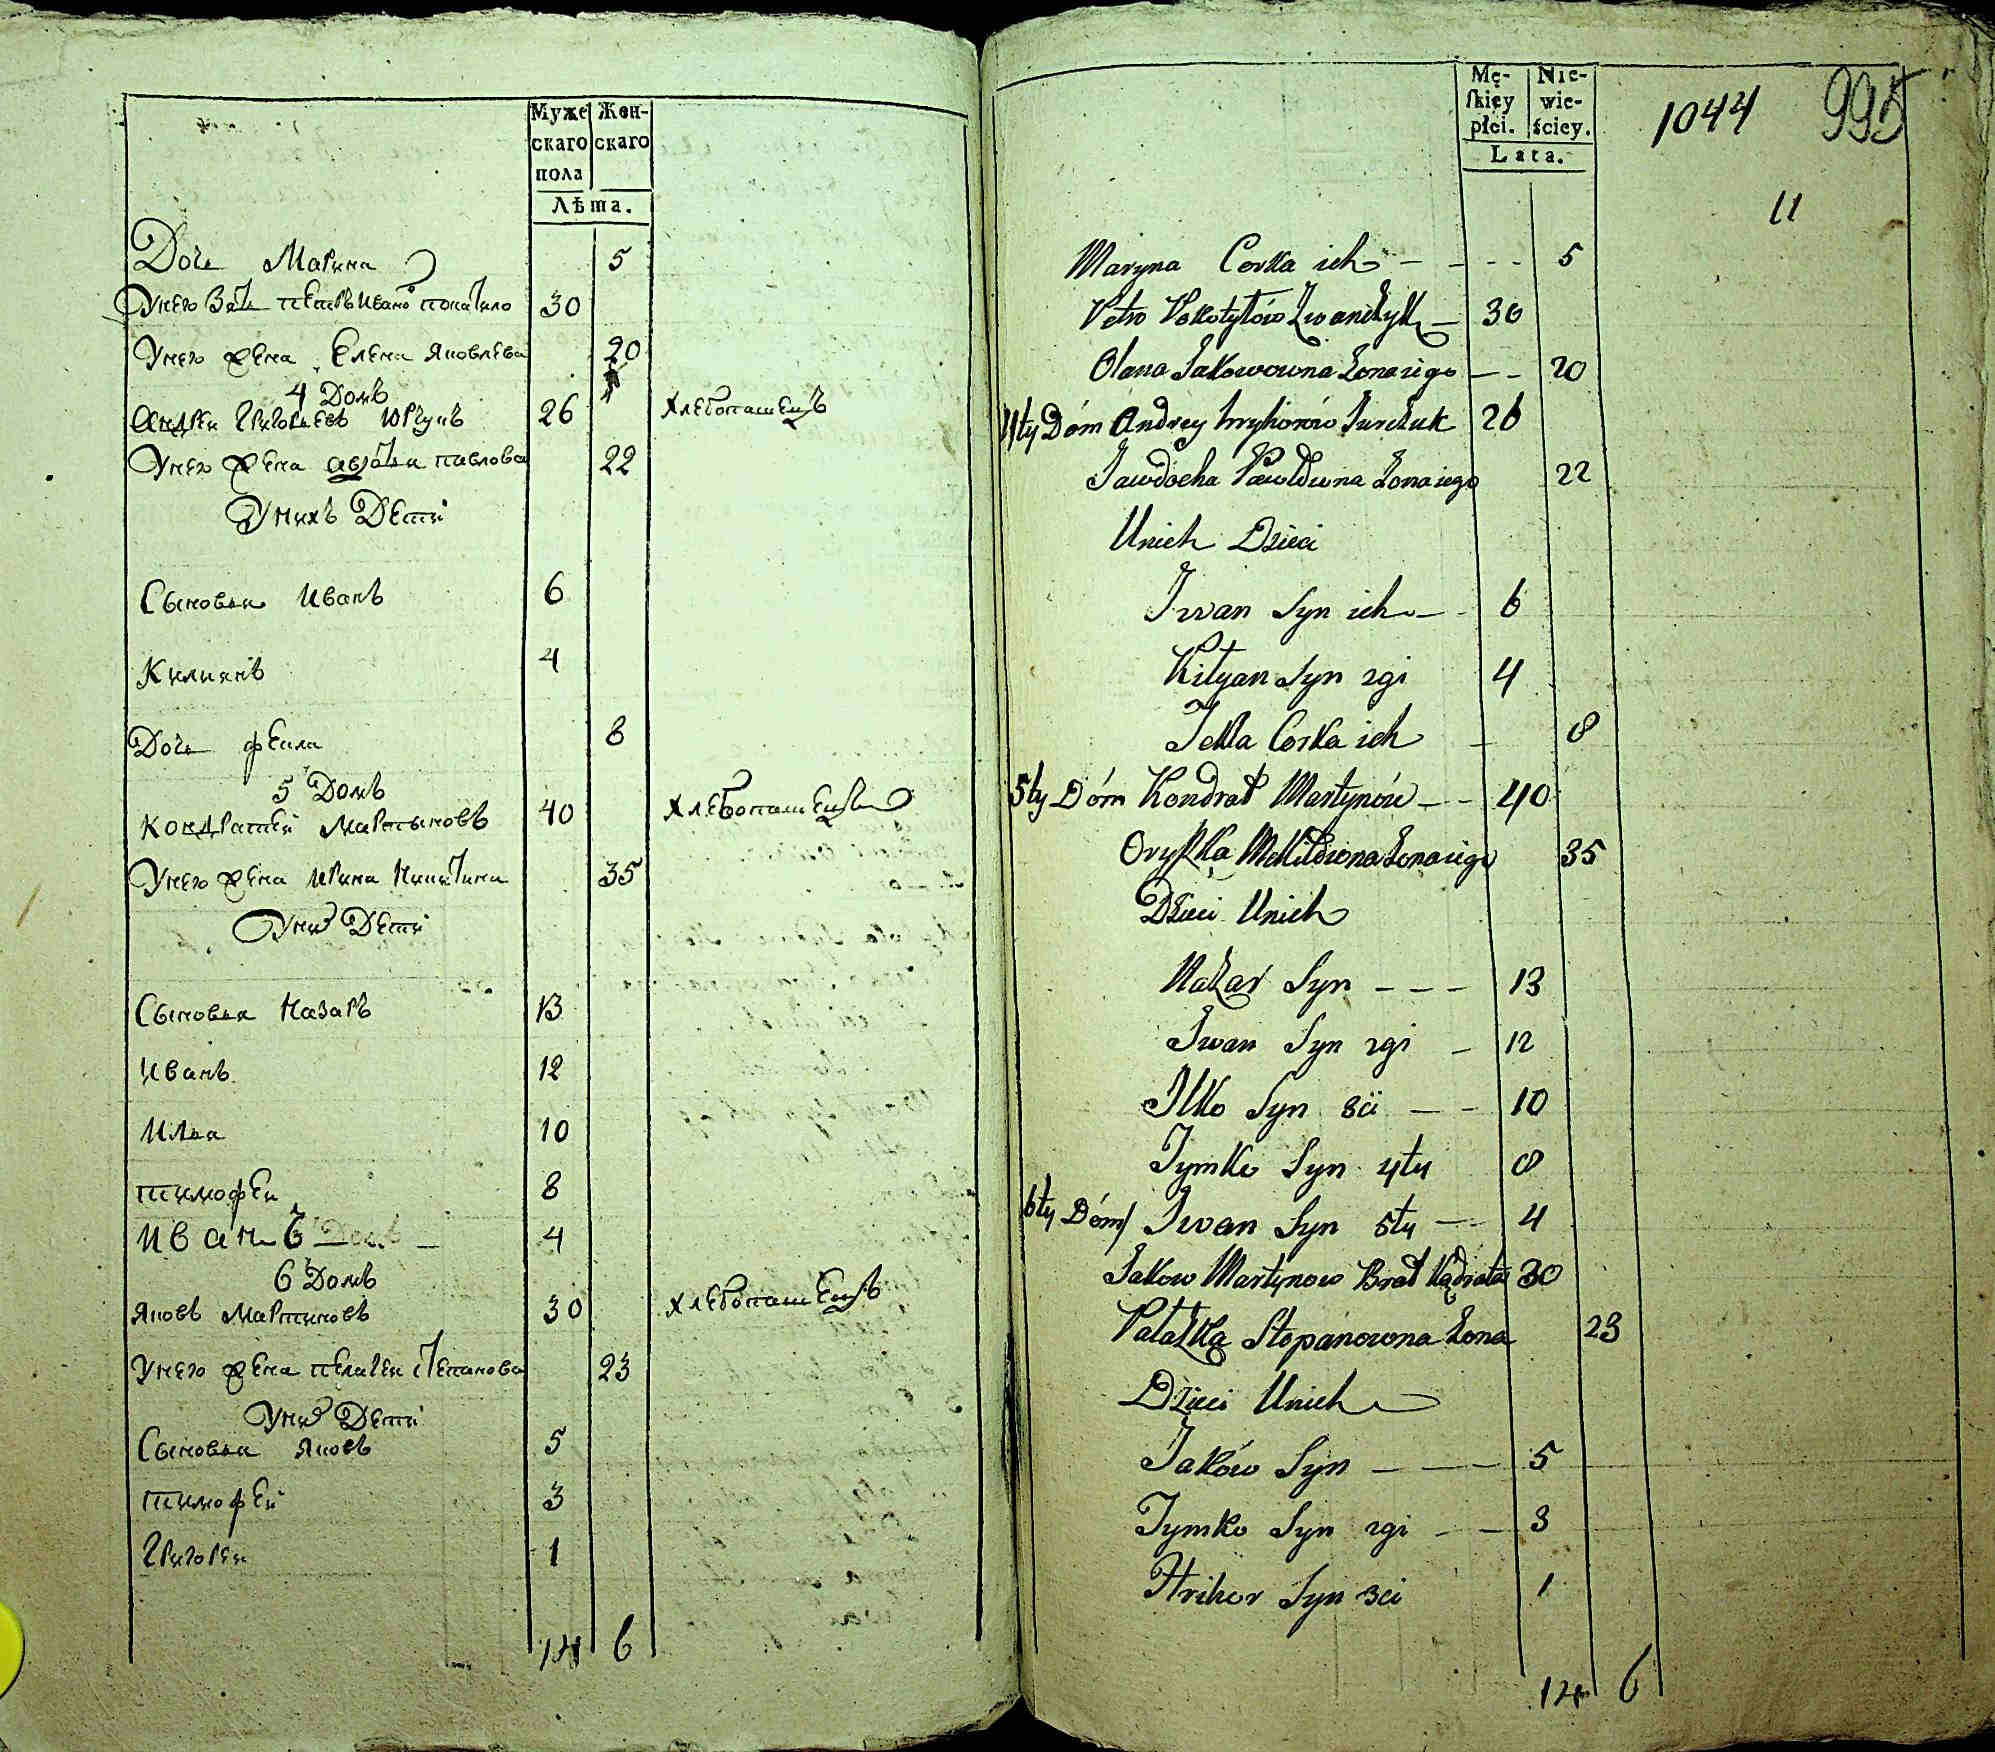 Муже Жен-
скаго скаго
пола
Лѣта.
Дочь Марина 5
У него Зять петръ Ивано покатило 30
У него жена Елена Яковлева 20
4 Домъ
Андреи Григорьевъ Юрчукъ 26 Хлебопашецъ
У него жена авдотья павлова 22
У нихъ Дети
Сыновья Иванъ 6
Килиянъ 4
Дочь фекла 8
5 Домъ
Кондратей Мартыновъ 40 Хлебопашецъ
У него жена Ирина Никитина 35
У них Дети
Сыновья Назаръ 13
Иванъ 12
Илья 10
тимофеи 8
Иванъ 4
6 Домъ
Яковъ Мартиновъ 30 Хлебопашецъ
У него жена пелагея Степанова 23
У них Дети
Сыновья Яковъ 5
тимофей 3
Григореи 1
14 6
Mę- Nie-
skiey wie-
płci. ściey.
Lata.
1044 995
11
Maryna Corka ich - - - - 5
Petro Pokotyłow Iwanczyk - 30
Olana Jakowowna Żona iego - - 20
4ty Dóm Andrey Hryhorów Jurczuk 26
Jawdocha Pawłowna Żona iego 22
U nich Dzieci
Iwan Syn ich - - 6
Kiłyan Syn 2gi 4
Tekla Corka ich - 8
5ty Dóm Kondrat Martynów - - 40
Oryszka Mikitowna Żona iego 35
Dzieci U nich
Nazar Syn - - - 13
Iwan Syn 2gi - 12
Ilko Syn 3ci - - 10
Tymko Syn 4ty 8
6ty Dóm/ Iwan Syn 5ty - - 4
Jakow Martynow Brat Kądrata 30
Pałażka Stepanowna Żona 23
Dzieci U nich
Jaków Syn - - - 5
Tymko Syn 2gi - - 3
Hrihor Syn 3ci 1
14 6